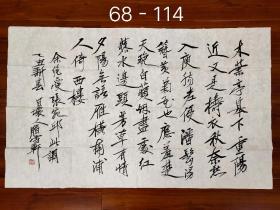 68 - 114
木葉亭皋下重陽
近又是擣衣秋奈愁
入庾腸老侵潘鬢謾
簪黄菊花也應羞楚
天晚白蘋烟盡處紅
蓼水邊頭芳草有情
夕陽無語雁横南浦
人倚西樓
余絶愛張宛邱此調
乙丑新春